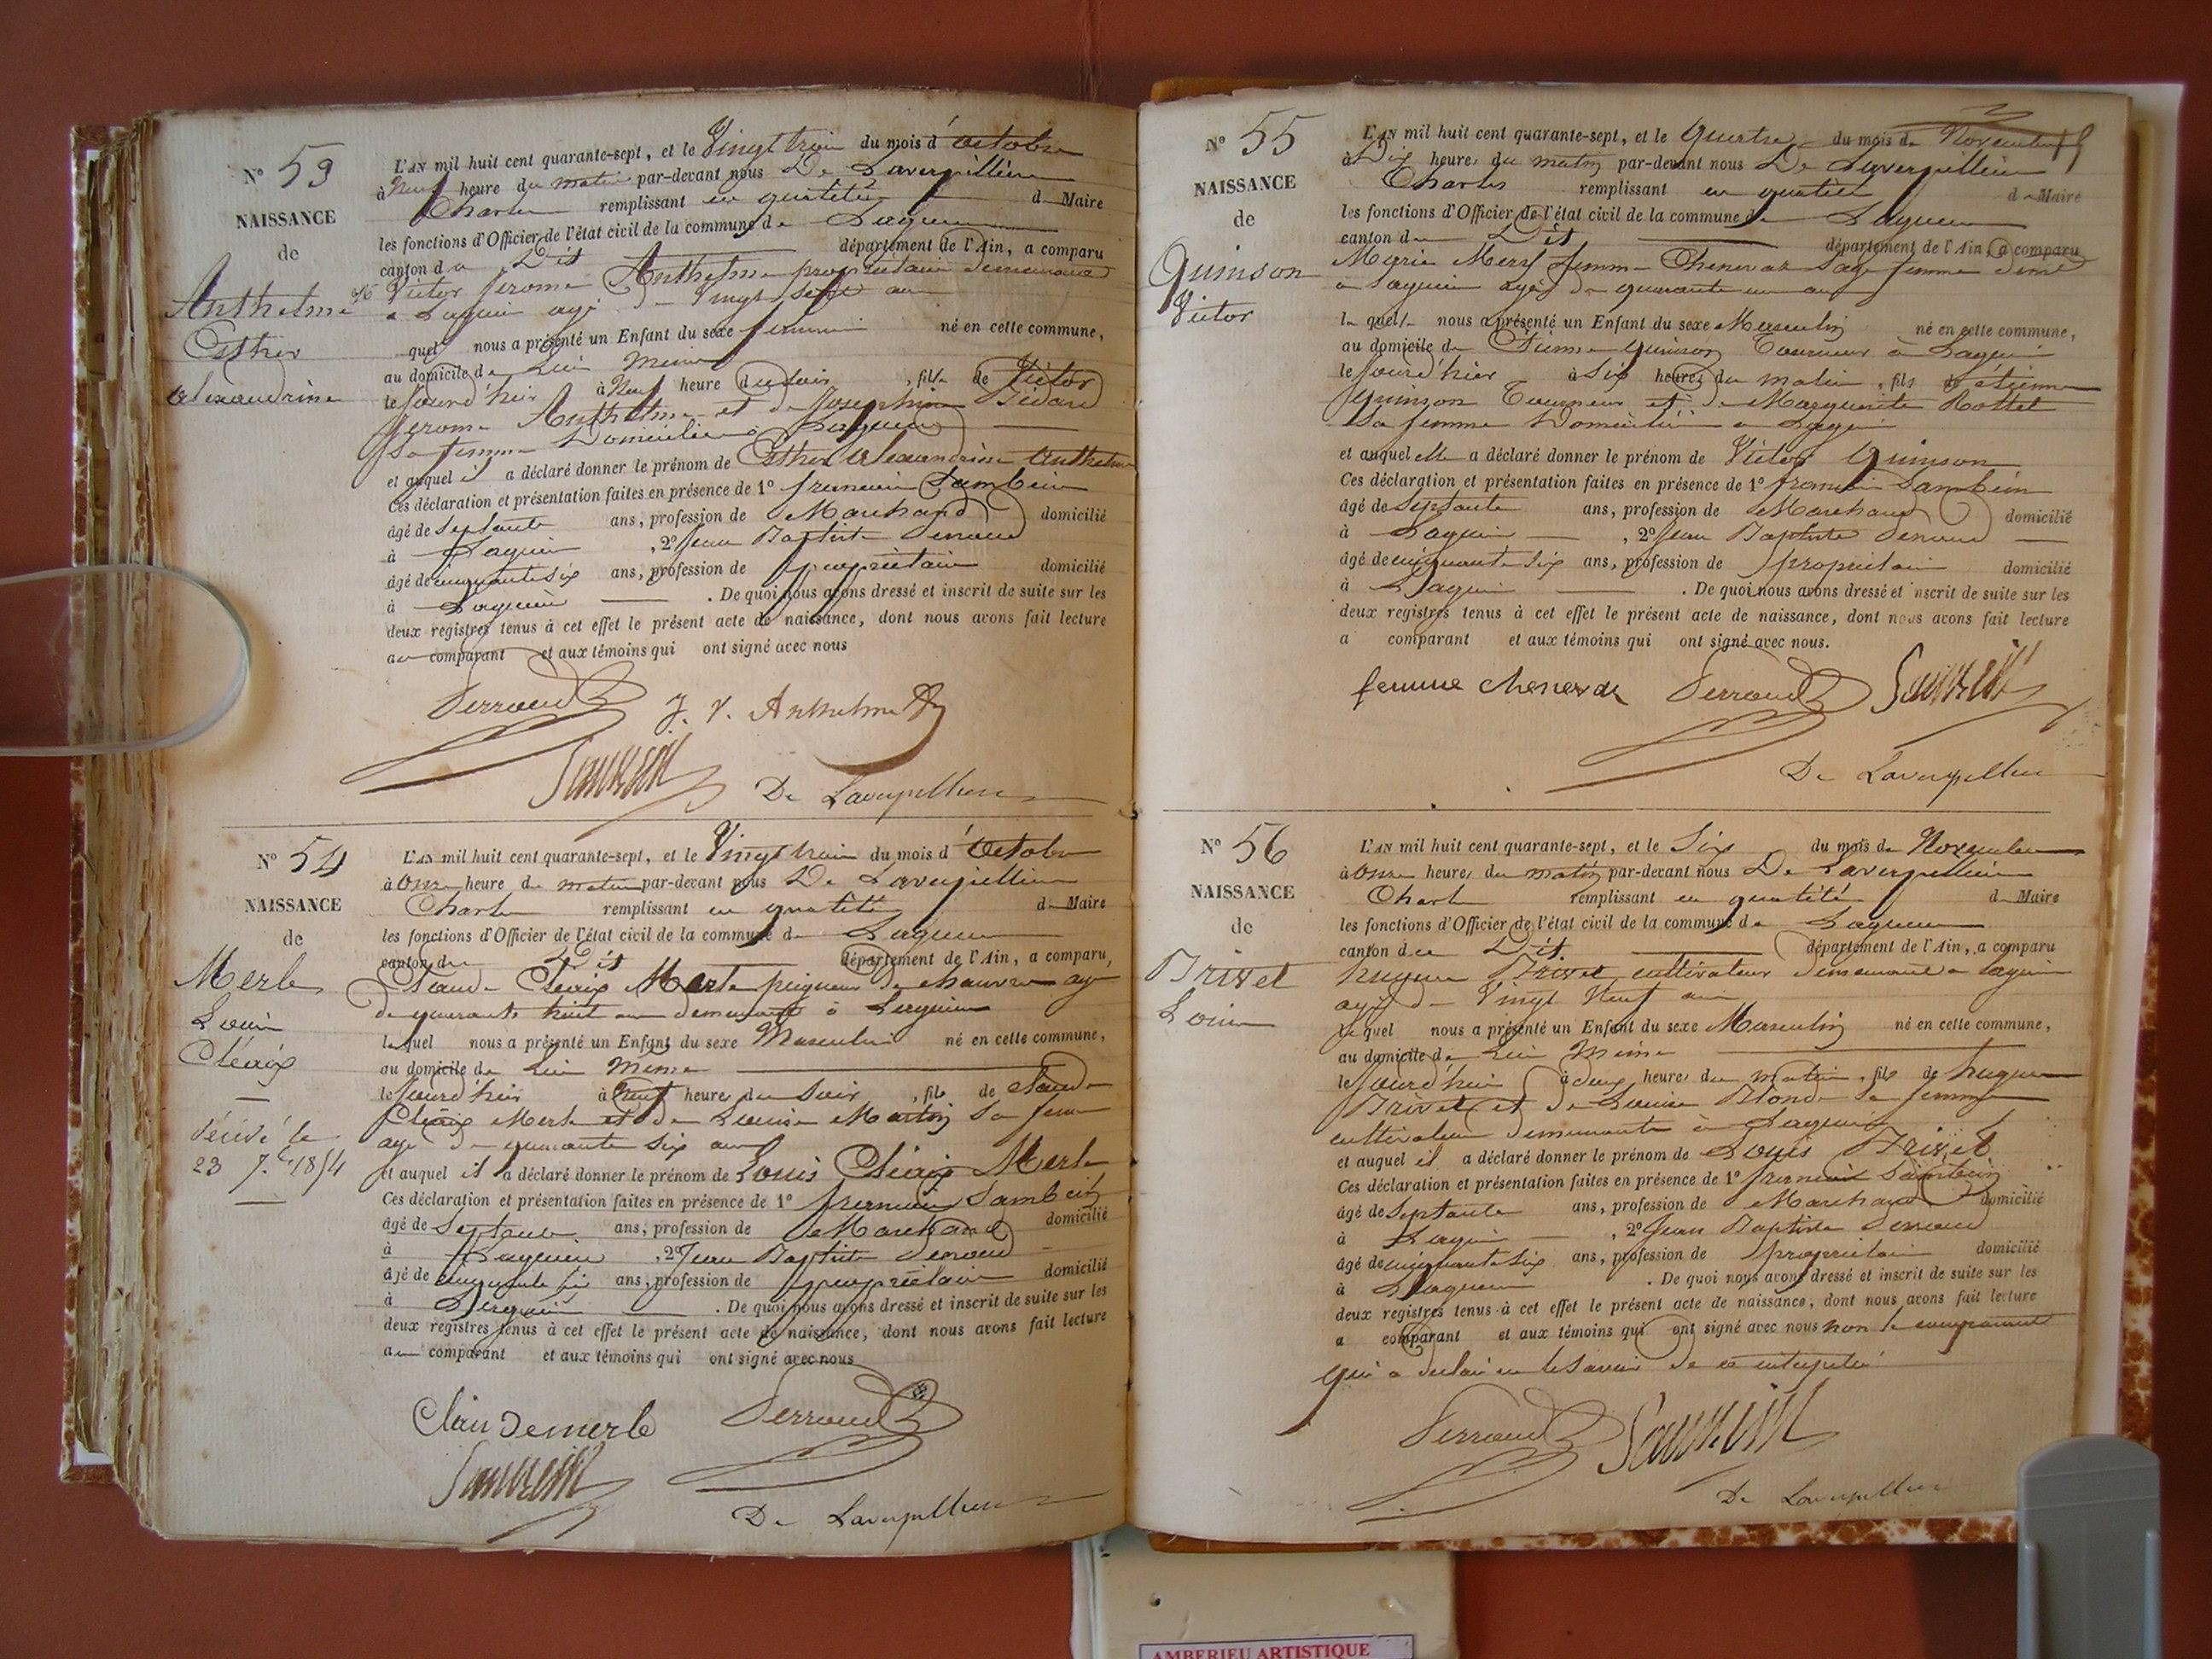 N° 53
NAISSANCE
de
Anthelme
Esther
Alexandrine
L'AN mil huit cent quarante-sept, et le Vingt trois du mois d'Octobre
à Neuf heure du matin par-devant nous De Laverpillière
Charles remplissant en qualité de Maire
les fonctions d'Officier de l'état civil de la commune de Lagnieu
canton du Dit département de l'Ain, a comparu
Victor Jerome Anthelme propriétaire demeurant
a Lagnieu agé Vingt sept ans
quel nous a présenté un Enfant du sexe feminin né en cette commune,
au domicile de Lui meme
le Jourd'hier à Neuf heure du soir, fille de Victor
Jerome Anthelme et de Josephine Bidard
sa femme Domiciliés à Lagnieu
et auquel il a déclaré donner le prénom de Esther Alexandrine Anthelme
Ces déclaration et présentation faites en présence de 1° Sambein
âgé de Septante ans, profession de Marchand domicilié
à Lagnieu, 2° Jean Baptiste Perraud
âgé de cinquante six ans, profession de propriétaire domicilié
à Lagnieu . De quoi nous avons dressé et inscrit de suite sur les
deux registres tenus à cet effet le présent acte de naissance, dont nous avons fait lecture
au comparant et aux témoins qui ont signé avec nous
Perraud J. V. Anthelme
Sambein De Laverpilliere
N° 54
NAISSANCE
de
Merle
Louis
Cléaix
23 7.bre 1854
L'AN mil huit cent quarante-sept, et le Vingt trois du mois d'Octobre
à Onze heure du matin par-devant nous De Laverpilliere
Charles remplissant en qualité de Maire
les fonctions d'Officier de l'état civil de la commune de Lagnieu
canton du Dit département de l'Ain, a comparu,
Claude Cléaix Merle peigneur de chanvre agé
de quarante huit ans demeurant à Lagnieu
lequel nous a présenté un Enfant du sexe Masculin né en cette commune,
au domicile de Lui Meme
le Jourd'hier à Neuf heures du Soir, fils de Claude
Cléaix Merle et de Louise Martin Sa femme
agé de quarante six ans
et auquel il a déclaré donner le prénom de Louis Cléaix Merle
Ces déclaration et présentation faites en présence de 1° Sambein
âgé de Septante ans, profession de Marchand domicilié
à Lagnieu, 2° Jean Baptiste Perraud
âgé de cinquante six ans, profession de propriétaire domicilié
à Lagnieu . De quoi nous avons dressé et inscrit de suite sur les
deux registres tenus à cet effet le présent acte de naissance, dont nous avons fait lecture
au comparant et aux témoins qui ont signé avec nous
Claude merle Perraud
Sambein
De Laverpilliere
N° 55
NAISSANCE
de
Quinson
Victor
L'AN mil huit cent quarante-sept, et le Quatre du mois de Novembre
à Dix heures du matin par-devant nous De Laverpilliere
Charles remplissant en qualité de Maire
les fonctions d'Officier de l'état civil de la commune de Lagnieu
canton du Dit département de l'Ain, a comparu
Marie femme Chenevaz Sage femme
a Lagnieu agée de quarante un ans
laquelle nous a présenté un Enfant du sexe Masculin né en cette commune,
au domicile de Etienne Quinson Tourneur à Lagnieu
le Jourd'hier à Six heures du matin, fils de etienne
Quinson Tourneur et de Marguerite Rottet
Sa femme Domiciliés a Lagnieu
et auquel elle a déclaré donner le prénom de Victor Quinson
Ces déclaration et présentation faites en présence de 1° Sambein
âgé de Septante ans, profession de Marchand domicilié
à Lagnieu, 2° Jean Baptiste Perraud
âgé de cinquante six ans, profession de propriétaire domicilié
à Lagnieu . De quoi nous avons dressé et inscrit de suite sur les
deux registres tenus à cet effet le présent acte de naissance, dont nous avons fait lecture
a comparant et aux témoins qui ont signé avec nous.
femme Perraud Sambein
De Laverpilliere
N° 56
NAISSANCE
de
Trivet
Louis
L'AN mil huit cent quarante-sept, et le Six du mois de Novembre
à Onze heures du matin par-devant nous De Laverpilliere
Charles remplissant en qualité de Maire
les fonctions d'Officier de l'état civil de la commune de Lagnieu
canton du Dit département de l'Ain, a comparu
hugues Trivet cultivateur demeurant a Lagnieu
agé de Vingt Neuf ans
lequel nous a présenté un Enfant du sexe Masculin né en cette commune,
au domicile de Lui Meme
le Jourd'hui à deux heures du matin, fils de hugues
Trivet et de Louise Blond sa femme
cultivateurs demeurants à Lagnieu
et auquel il a déclaré donner le prénom de Louis Trivet
Ces déclaration et présentation faites en présence de 1° Sambein
âgé de Septante ans, profession de Marchand domicilié
à Lagnieu, 2° Jean Baptiste Perraud
âgé de cinquante six ans, profession de propriétaire domicilié
à Lagnieu . De quoi nous avons dressé et inscrit de suite sur les
deux registres tenus à cet effet le présent acte de naissance, dont nous avons fait lecture
a comparant et aux témoins qui ont signé avec nous non le comparant
qui a declaré ne le savoir de ce
Perraud Sambein
De Laverpilliere
AMBERIEU ARTISTIQUE